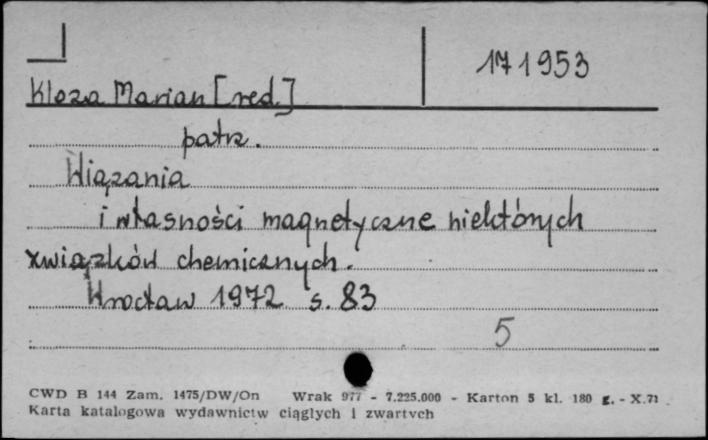 171953
Kloza Marian [red.]
patrz.
Wiązania
i własności magnetyczne niektórych
związków chemicznych.
Wrocław 1972 s. 83
5
CWD B 144 Zam. 1475/DW/On Wrak 977 - 7.225.000 - Karton 5 kl. 180 g. - X.71
Karta katalogowa wydawnictw ciągłych i zwartych